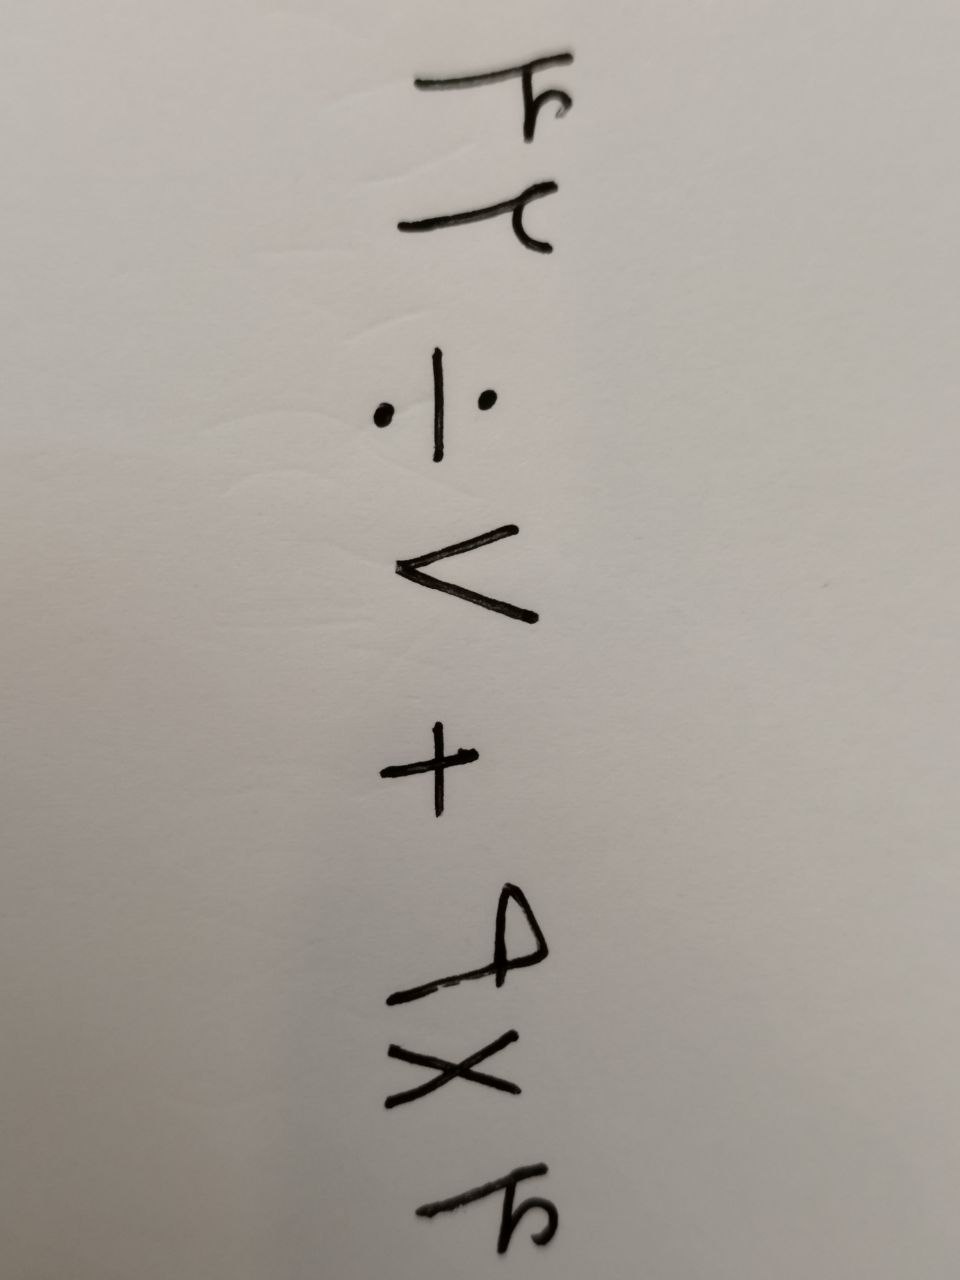 ۴۲ ÷ ۷ + ۹ × ۴